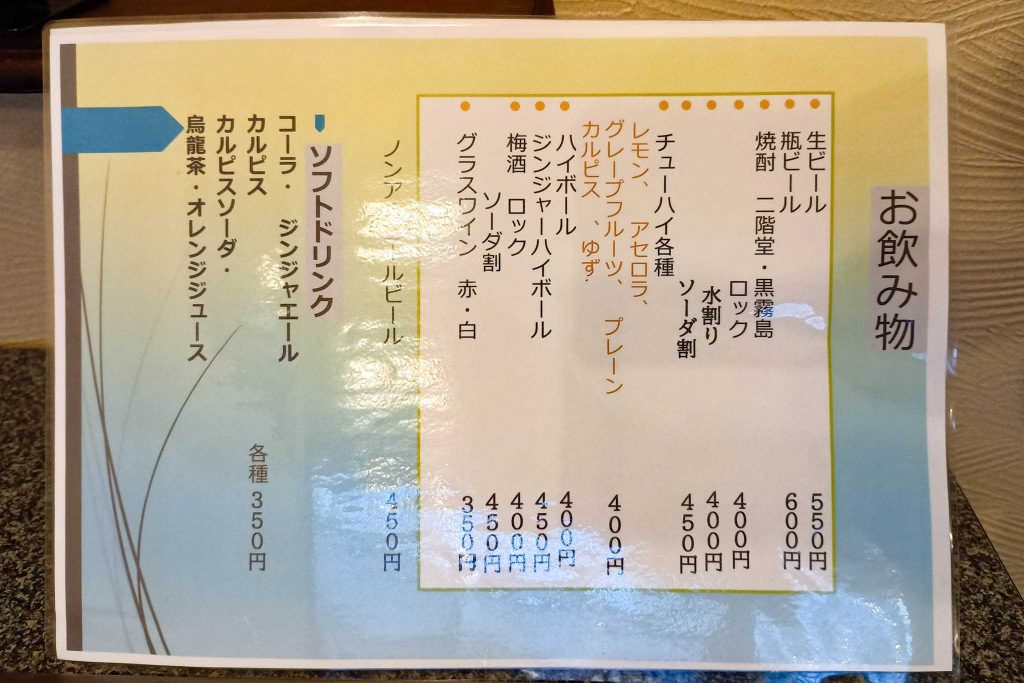 お飲み物
生ビール 550円
瓶ビール 600円
焼酎 二階堂・黒霧島
ロック 400円
水割り 400円
ソーダ割 450円
チューハイ各種
レモン、アセロラ、
グレープフルーツ、プレーン 400円
カルピス、ゆず.
ハイボール 400円
ジンジャーハイボール 450円
梅酒 ロック 400円
ソーダ割 450円
グラスワイン 赤・白 350円
ソフトドリンク
コーラ・ジンジャエール
カルピス 各種350円
カルピスソーダ・
烏龍茶・オレンジジュース